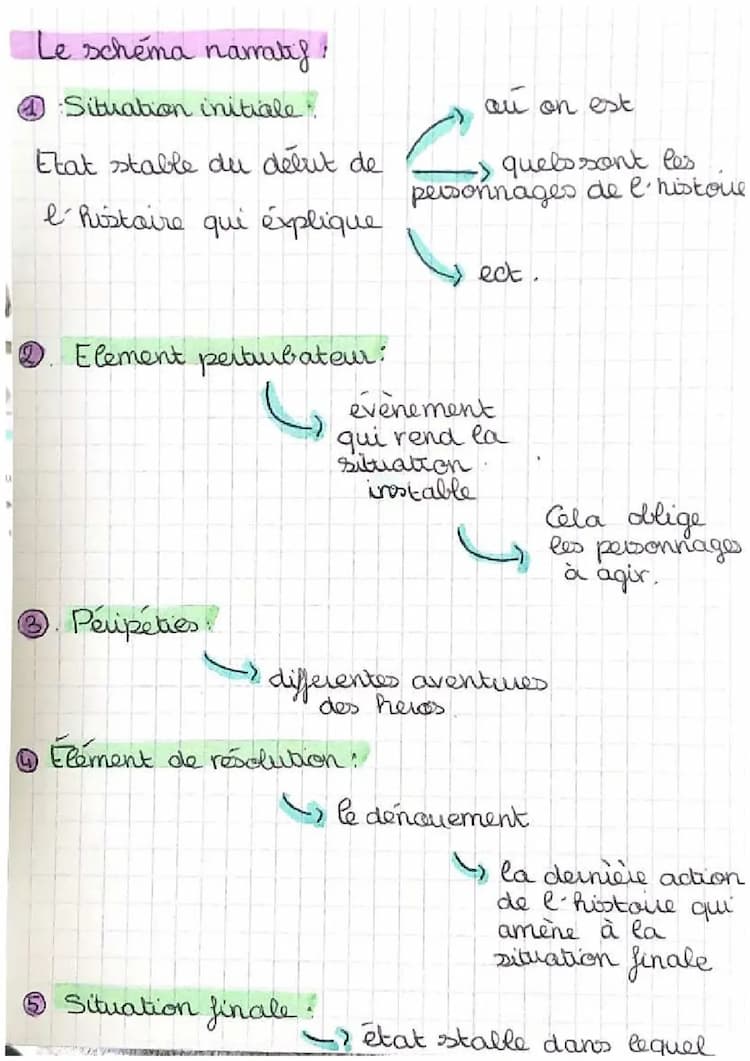 Le schéma narratif :
① Situation initiale :
Etat stable du début de
l'histoire qui éxplique
où on est
quels sont les
personnages de l'histoire
ect.
②. Elément perturbateur :
évènement
qui rend la
situation
instable
Cela oblige
les personnages
à agir.
③. Péripéties :
differentes aventures
des heros
④ Élément de résolution :
le dénouement
la dernière action
de l'histoire qui
amène à la
situation finale
⑤ Situation finale :
état stable dans lequel